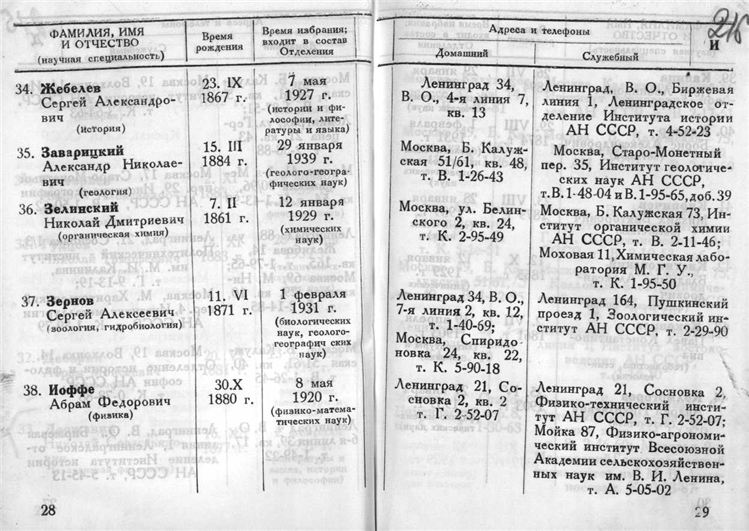 ФАМИЛИЯ, ИМЯ
И ОТЧЕСТВО
(научная специальность)
Время
рождения
Время избрания;
входит в состав
Отделения
34. Жебелев
Сергей Александро-
вич
(история)
23. IX
1867 г.
7 мая
1927 г.
(истории и фи-
лософии, лите-
ратуры и языка)
35. Заварицкий
Александр Николае-
вич
(геология)
15. III
1884 г.
29 января
1939 г.
(геолого-геогра-
фических наук)
36. Зелинский
Николай Дмитриевич
(органическая химия)
7. II
1861 г.
12 января
1929 г.
(химических
наук)
37. Зернов
Сергей Алексеевич
(зоология, гидробиология)
11. VI
1871 г.
1 февраля
1931 г.
(биологических
наук, геолого-
географич ских
наук)
38. Иоффе
Абрам Федорович
(физика)
30.X
1880 г.
8 мая
1920 г.
(физико-матема-
тических наук)
28
Адреса и телефоны
Домашний
Служебный
И
Ленинград 34,
В. О., 4-я линия 7,
кв. 13
Ленинград, В. О., Биржевая
линия 1, Ленинградское от-
деление Института истории
АН СССР, т. 4-52-23
Москва, Б. Калуж-
ская 51/61, кв. 48,
т. В. 1-26-43
Москва, Старо-Монетный
пер. 35, Институт геологиче-
ских наук АН СССР,
т.В.1-48-04 и В.1-95-65,доб.39
Москва, ул. Белин-
ского 2, кв. 24,
т. К. 2-95-49
Москва, Б. Калужская 73, Ин-
ститут органической химии
АН СССР, т. В. 2-11-46;
Моховая 11, Химическая лабо-
ратория М. Г. У.,
т. К. 1-95-50
Ленинград 34, В. О.,
7-я линия 2, кв. 12,
т. 1-40-69;
Москва, Спиридо-
новка 24, кв. 22,
т. К. 5-90-18
Ленинград 164, Пушкинский
проезд 1, Зоологический ин-
ститут АН СССР, т. 2-29-90
Ленинград 21, Со-
сновка 2, кв. 2
т. Г. 2-52-07
Ленинград 21, Сосновка 2,
Физико-технический инсти-
тут АН СССР, т. Г. 2-52-07;
Мойка 87, Физико-агрономи-
ческий институт Всесоюзной
Академии сельскохозяйствен-
ных наук им. В. И. Ленина,
т. А. 5-05-02
29